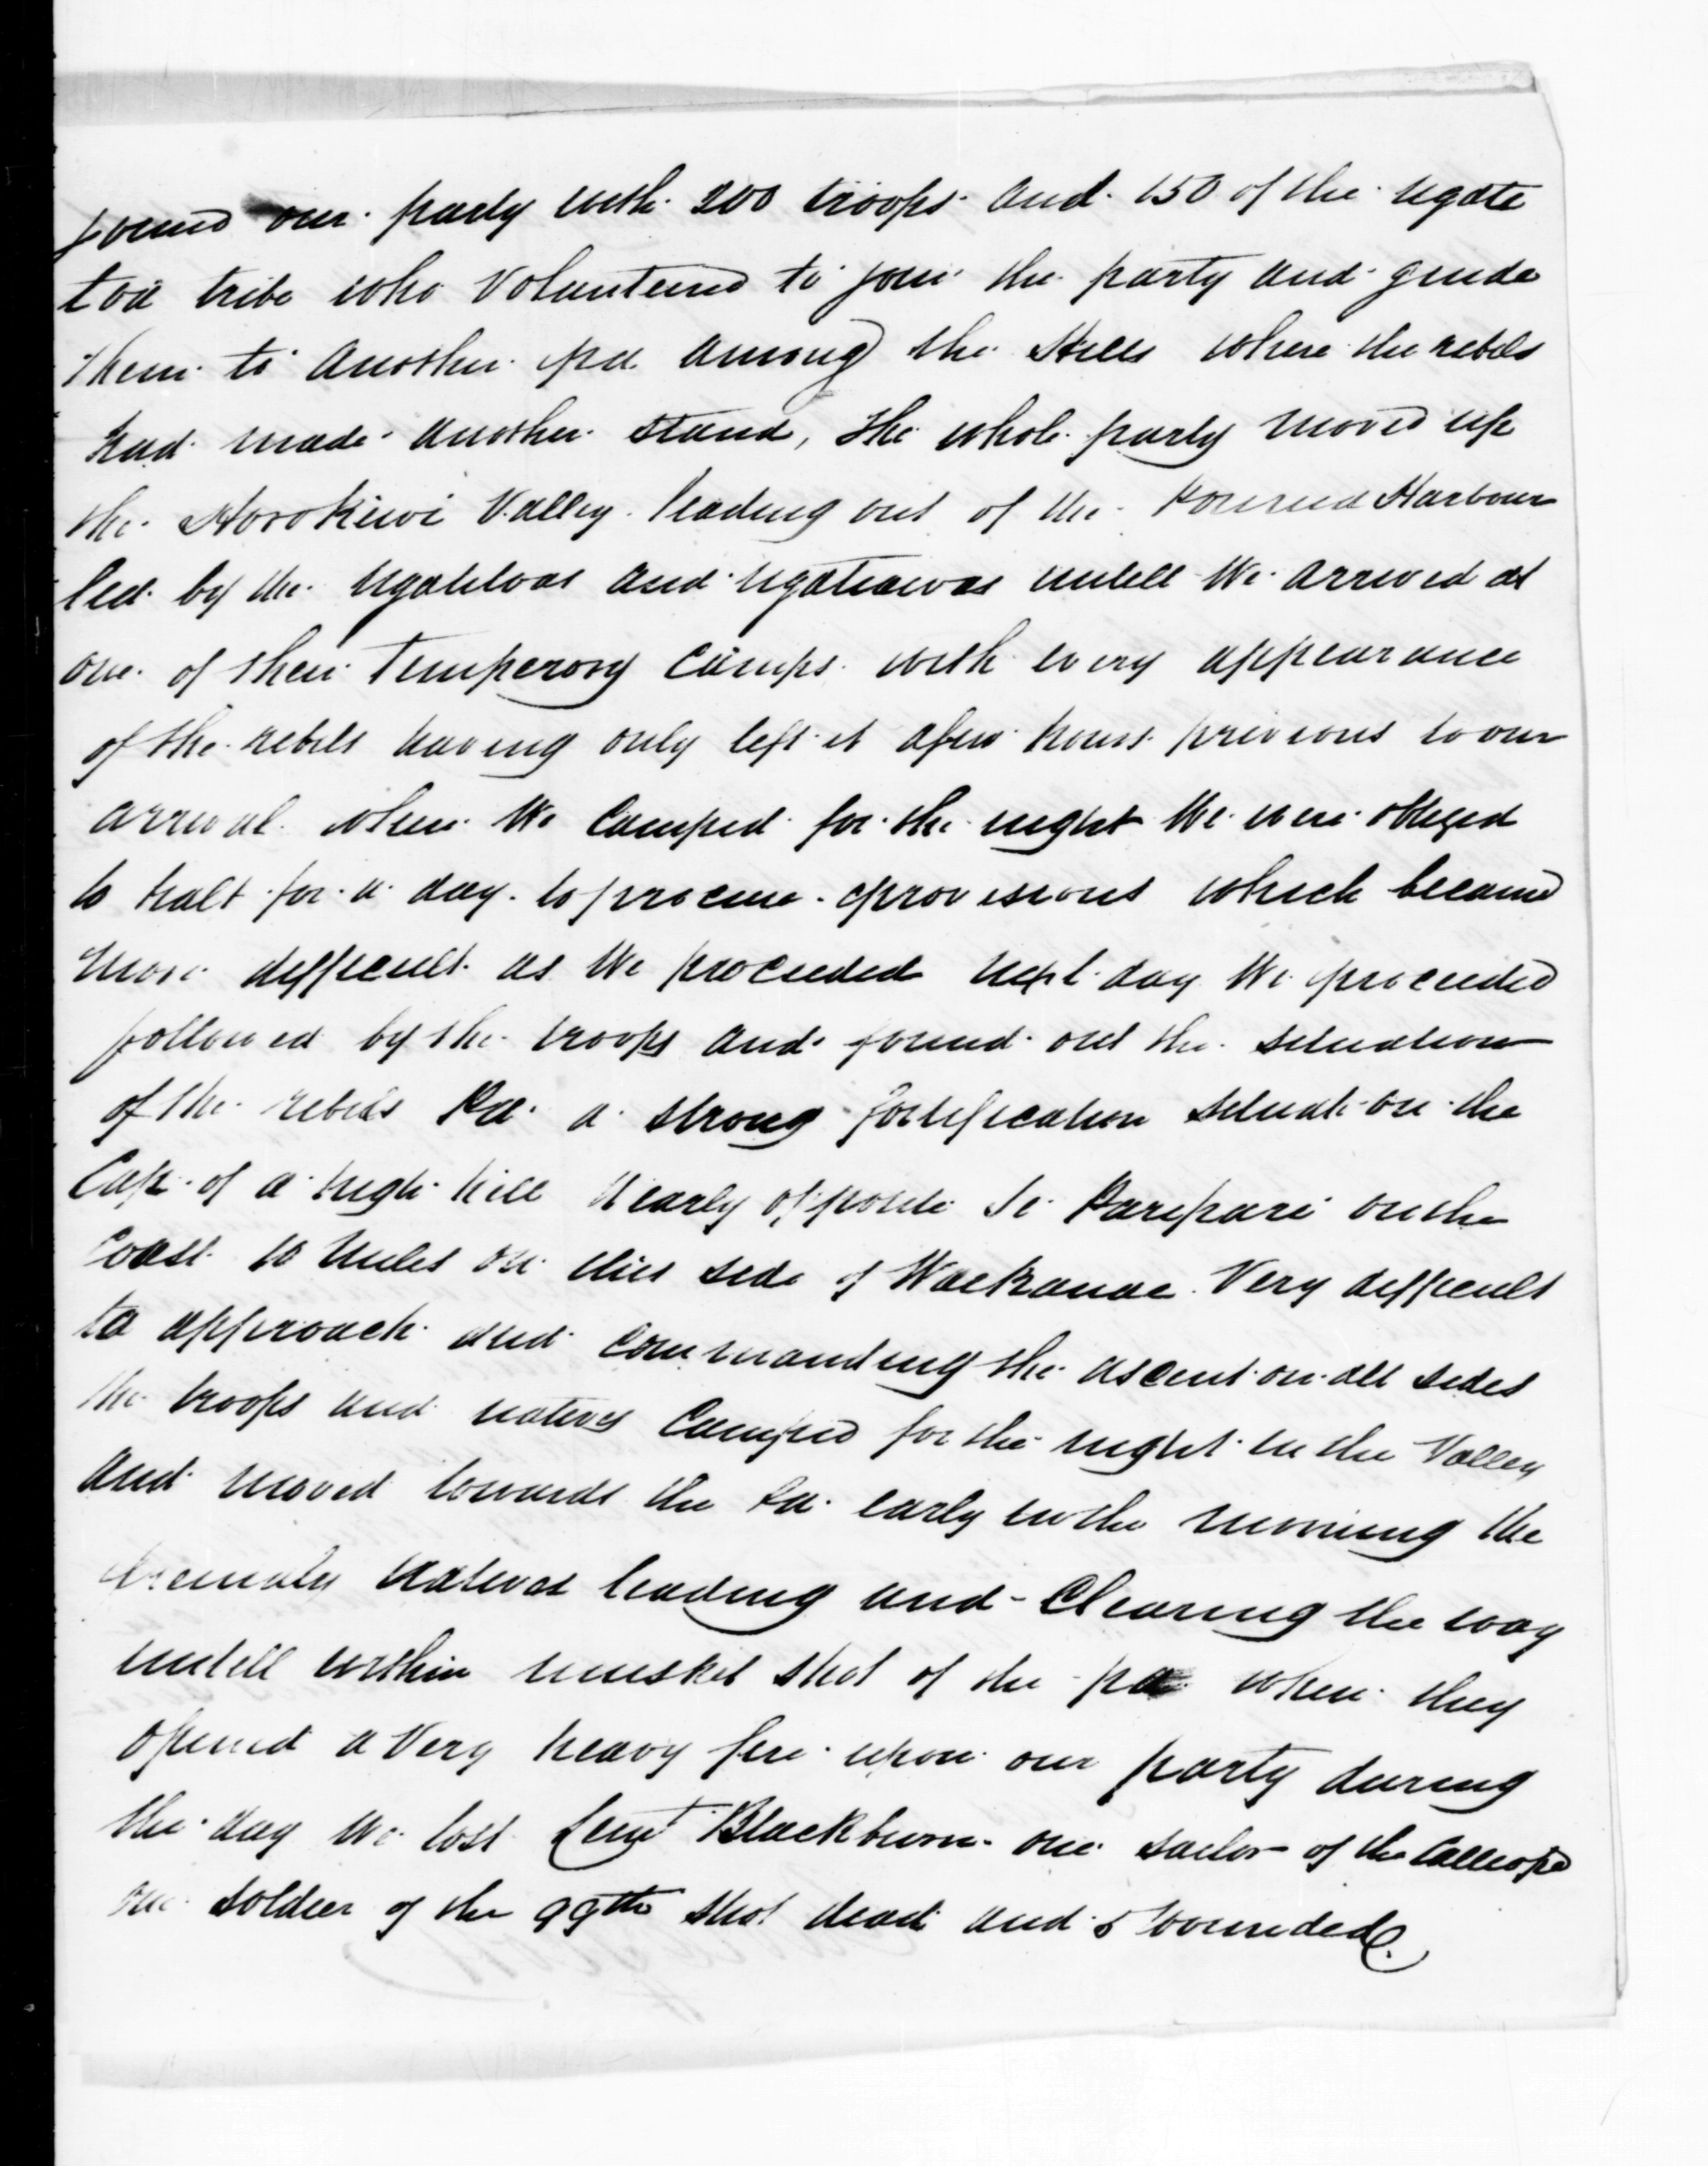 joined our party with 200 troops and 150 of the Ngate
toa tribe who Volunteered to join the party and guide
them to Another pa among the Hills where the rebels
had made another stand, the whole party moved up
the Horokiwi Valley leading out of the Porirua Harbour
led by the Ngatitoas and Ngatiawas untill We arrived at
one of their Temperory Camps with every appearance
of the rebels having only left it afew hours previous to our
arrival when We Camped for the night We were obliged
to halt for a day to procure provisions which became
more difficult as We proceeded Next day We proceeded
followed by the troops and found out the situation
of the rebels Pa a strong fortification situate on the
Cap of a high hill Nearly opposite to Paripari on the
Coast 10 Miles on this side of Waekanae Very difficult
to approach and commanding the ascent on all sides
the troops and natives Camped for the night in the Valley
And moved towards the Pa early in the morning the
natives leading and Clearing the way
untill within musket shot of the pa when they
opened a Very heavy fire upon our party during
the day We lost Leut Blackburn one sailor of the Calliope
one soldier of the 99th shot dead and 5 Wounded